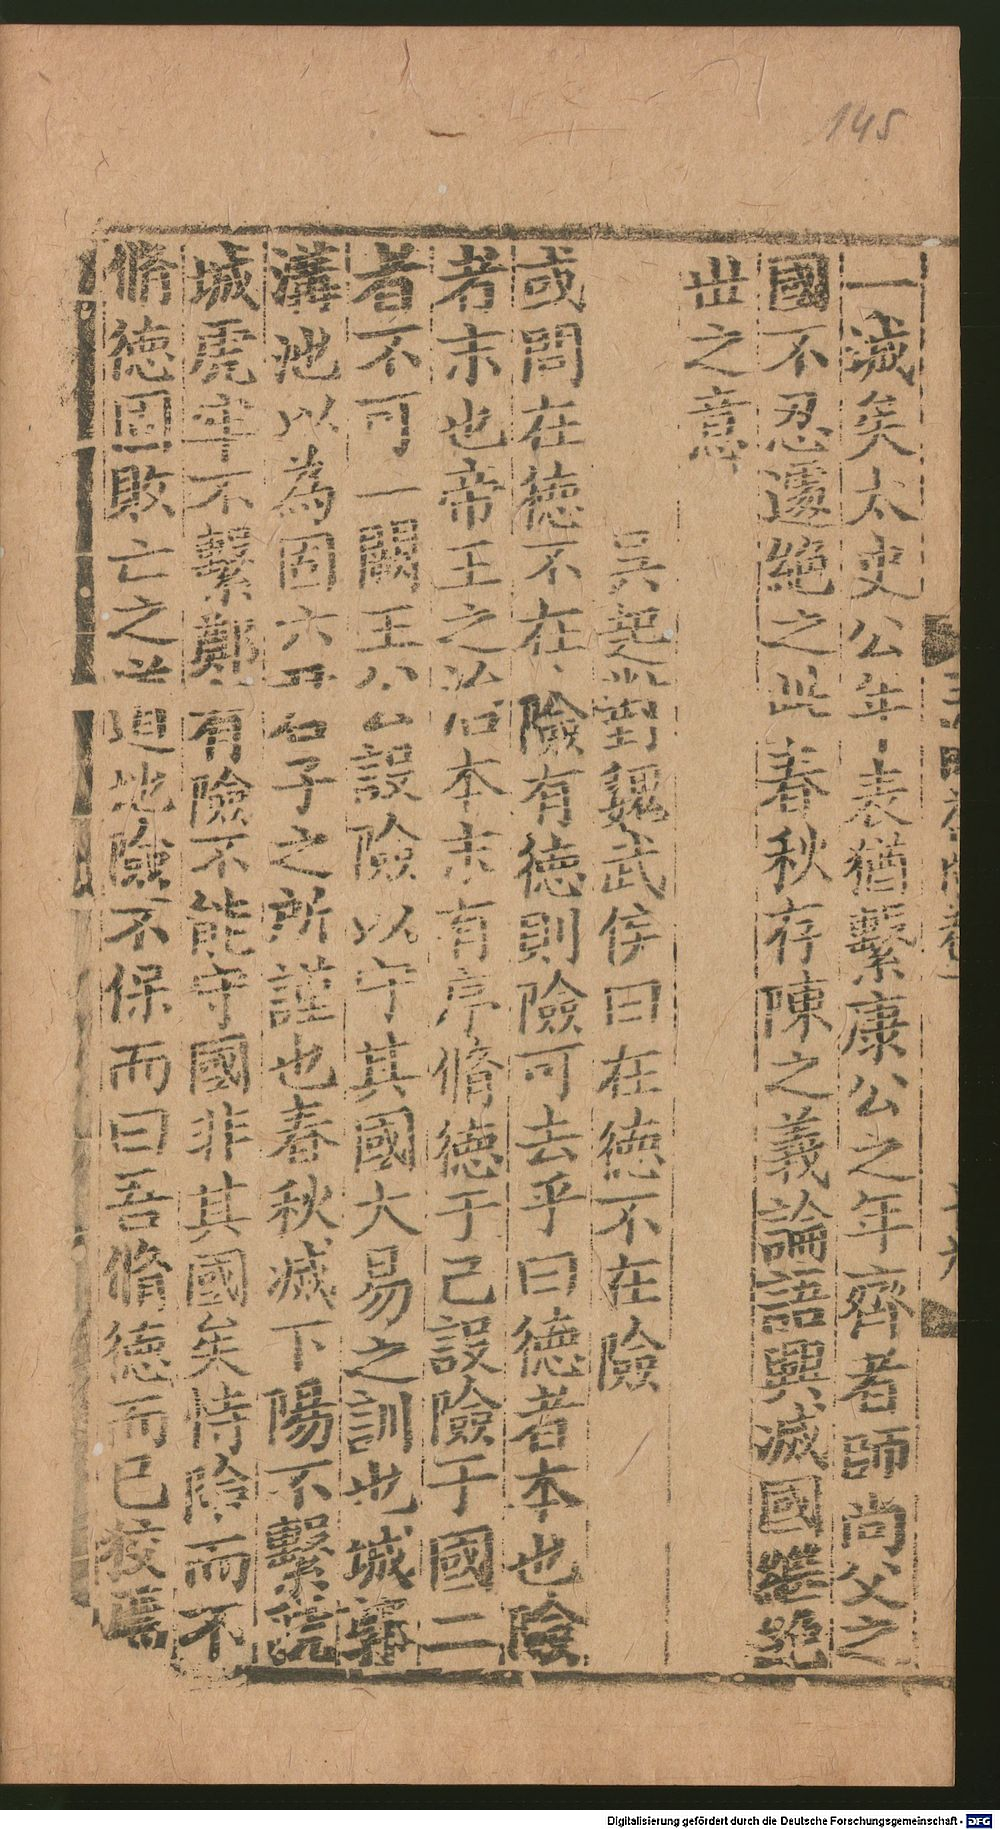 145
一滅矣太史公年表猶繫康公之年齊者師尚父之
國不忍遽絕之此春秋存陳之義論語興滅國繼絕
世之意
吳起對魏武侯曰在德不在險
或問在德不在險有德則險可去乎曰德者本也險
者末也帝王之治本末有序脩德于己設險于國二
者不可一闕王公設險以守其國大易之訓也城郭
溝池以為固六君子之所謹也春秋滅下陽不繫虢
城虎牢不繫鄭有險不能守國非其國矣恃險而不
脩德固敗亡之道地險不保而曰吾脩德而已
Digitalisierung gefördert durch die Deutsche Forschungsgemeinschaft - DFG